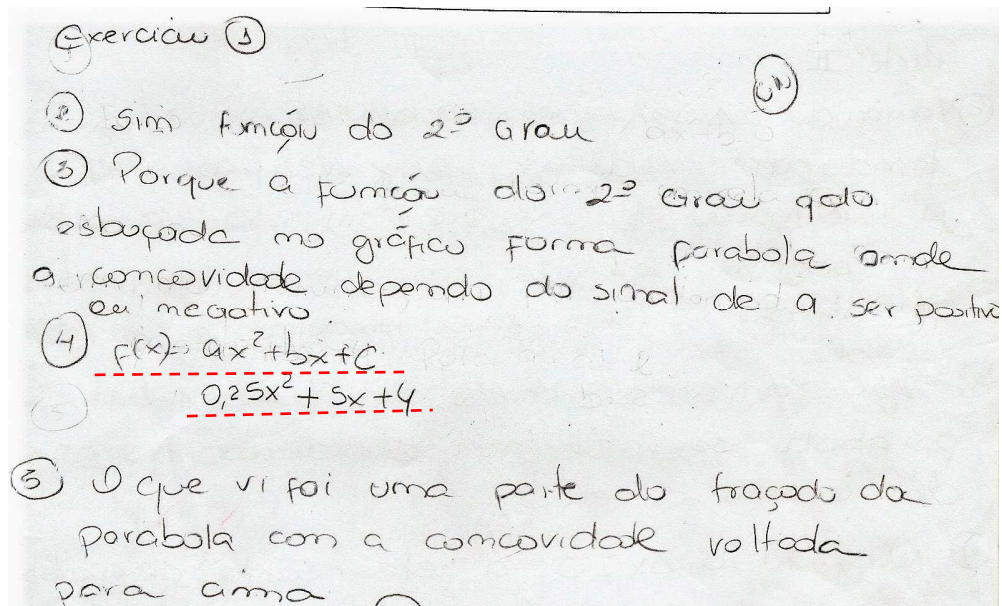 Exercicio ①
② Sim função do 2º Grau
③ Porque a função do 2º Grau qdo
esboçada no gráfico forma parabola onde
a concavidade depende do sinal de a ser positivo
ou negativo
④ f(x)= ax²+bx+C
0,25x² + 5x + 4
⑤ O que vi foi uma parte do traçado da
parabola com a concavidade voltada
para cima